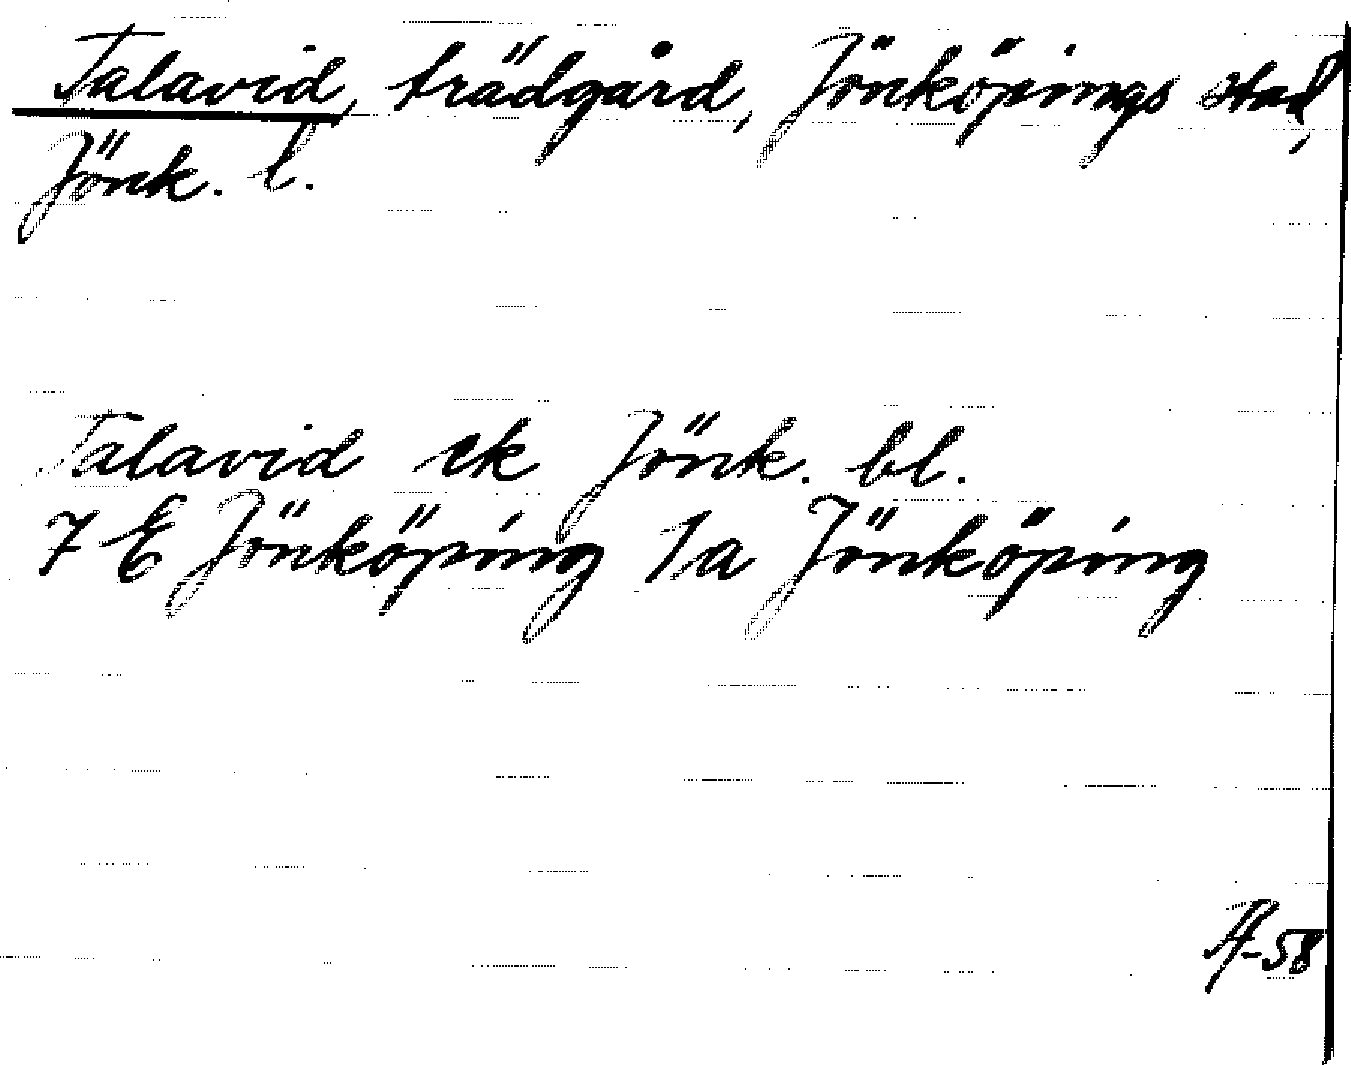 Talavid, trädgård, Jönköpings stad,
Jönk. l.
Talavid ek Jönk. bl.
7 E Jönköping 1a Jönköping
-58